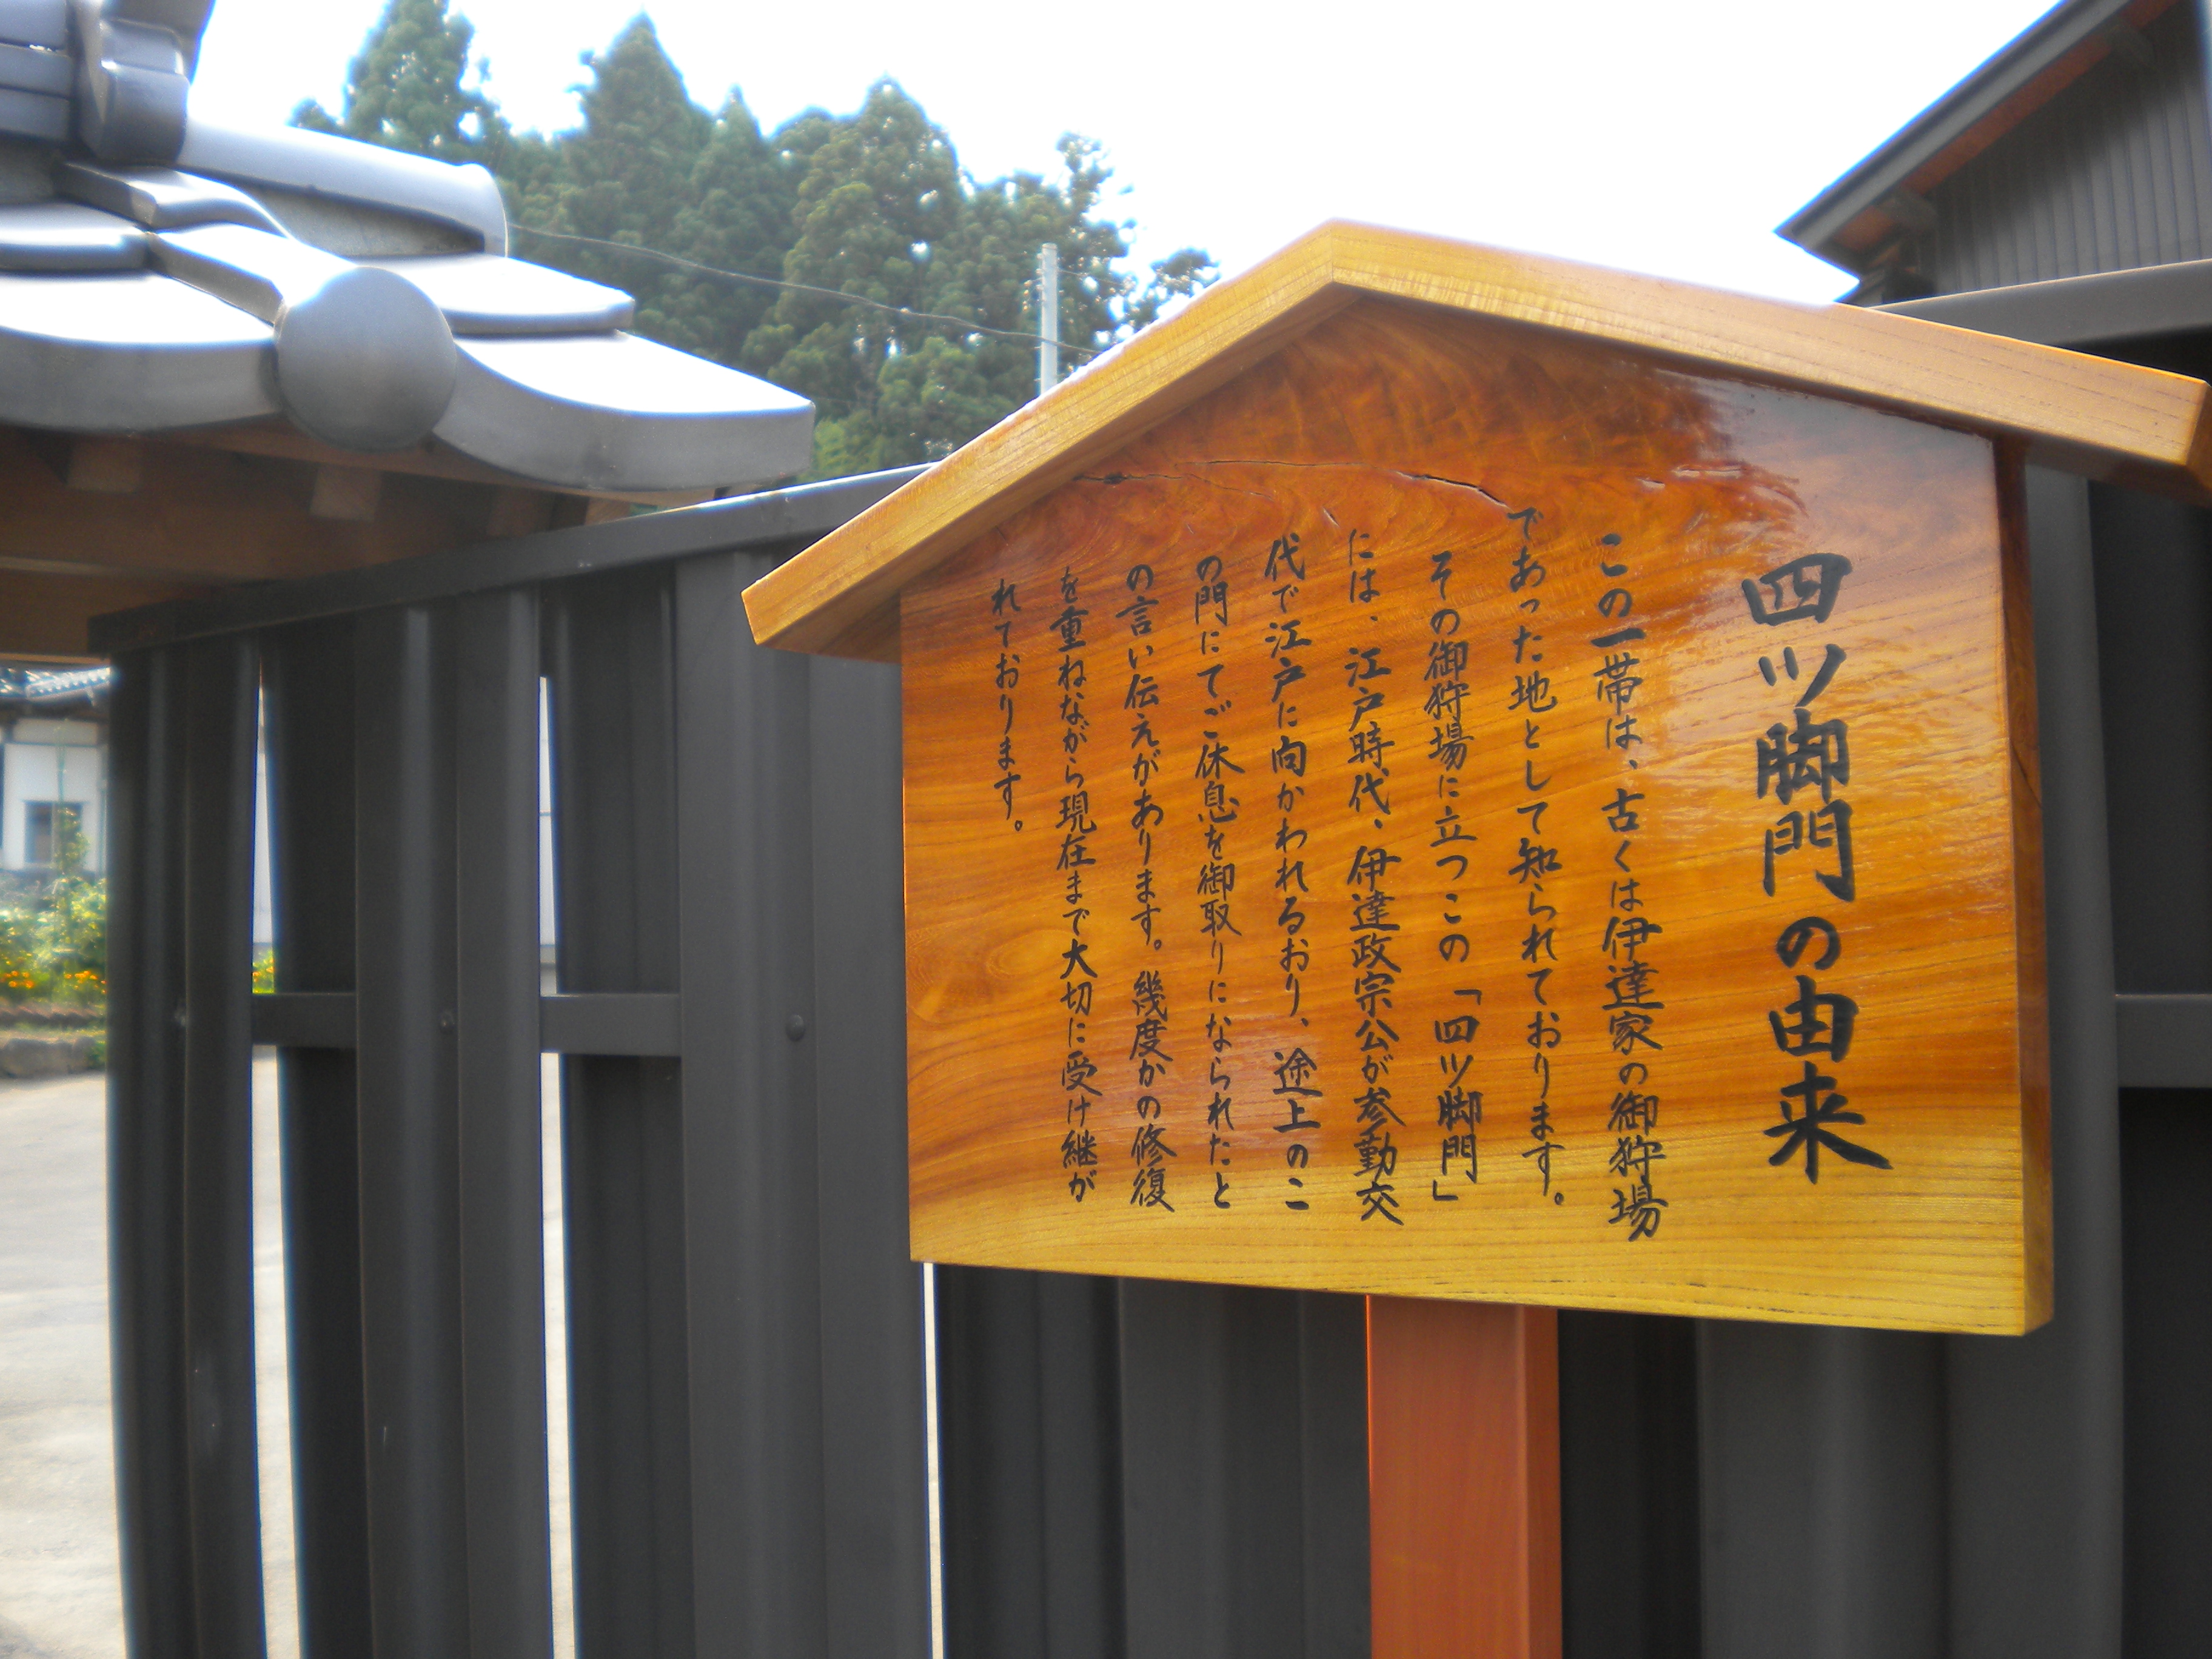 四ツ脚門の由来
この一帯は、古くは伊達家の御狩場
であった地として知られております。
その御狩場に立つこの「四ツ脚門」
には、江戸時代、伊達政宗公が参勤交
代で江戸に向かわれるおり、途上のこ
の門にてご休息を御取りになられたと
の言い伝えがあります。幾度かの修復
を重ねながら現在まで大切に受け継が
れております。